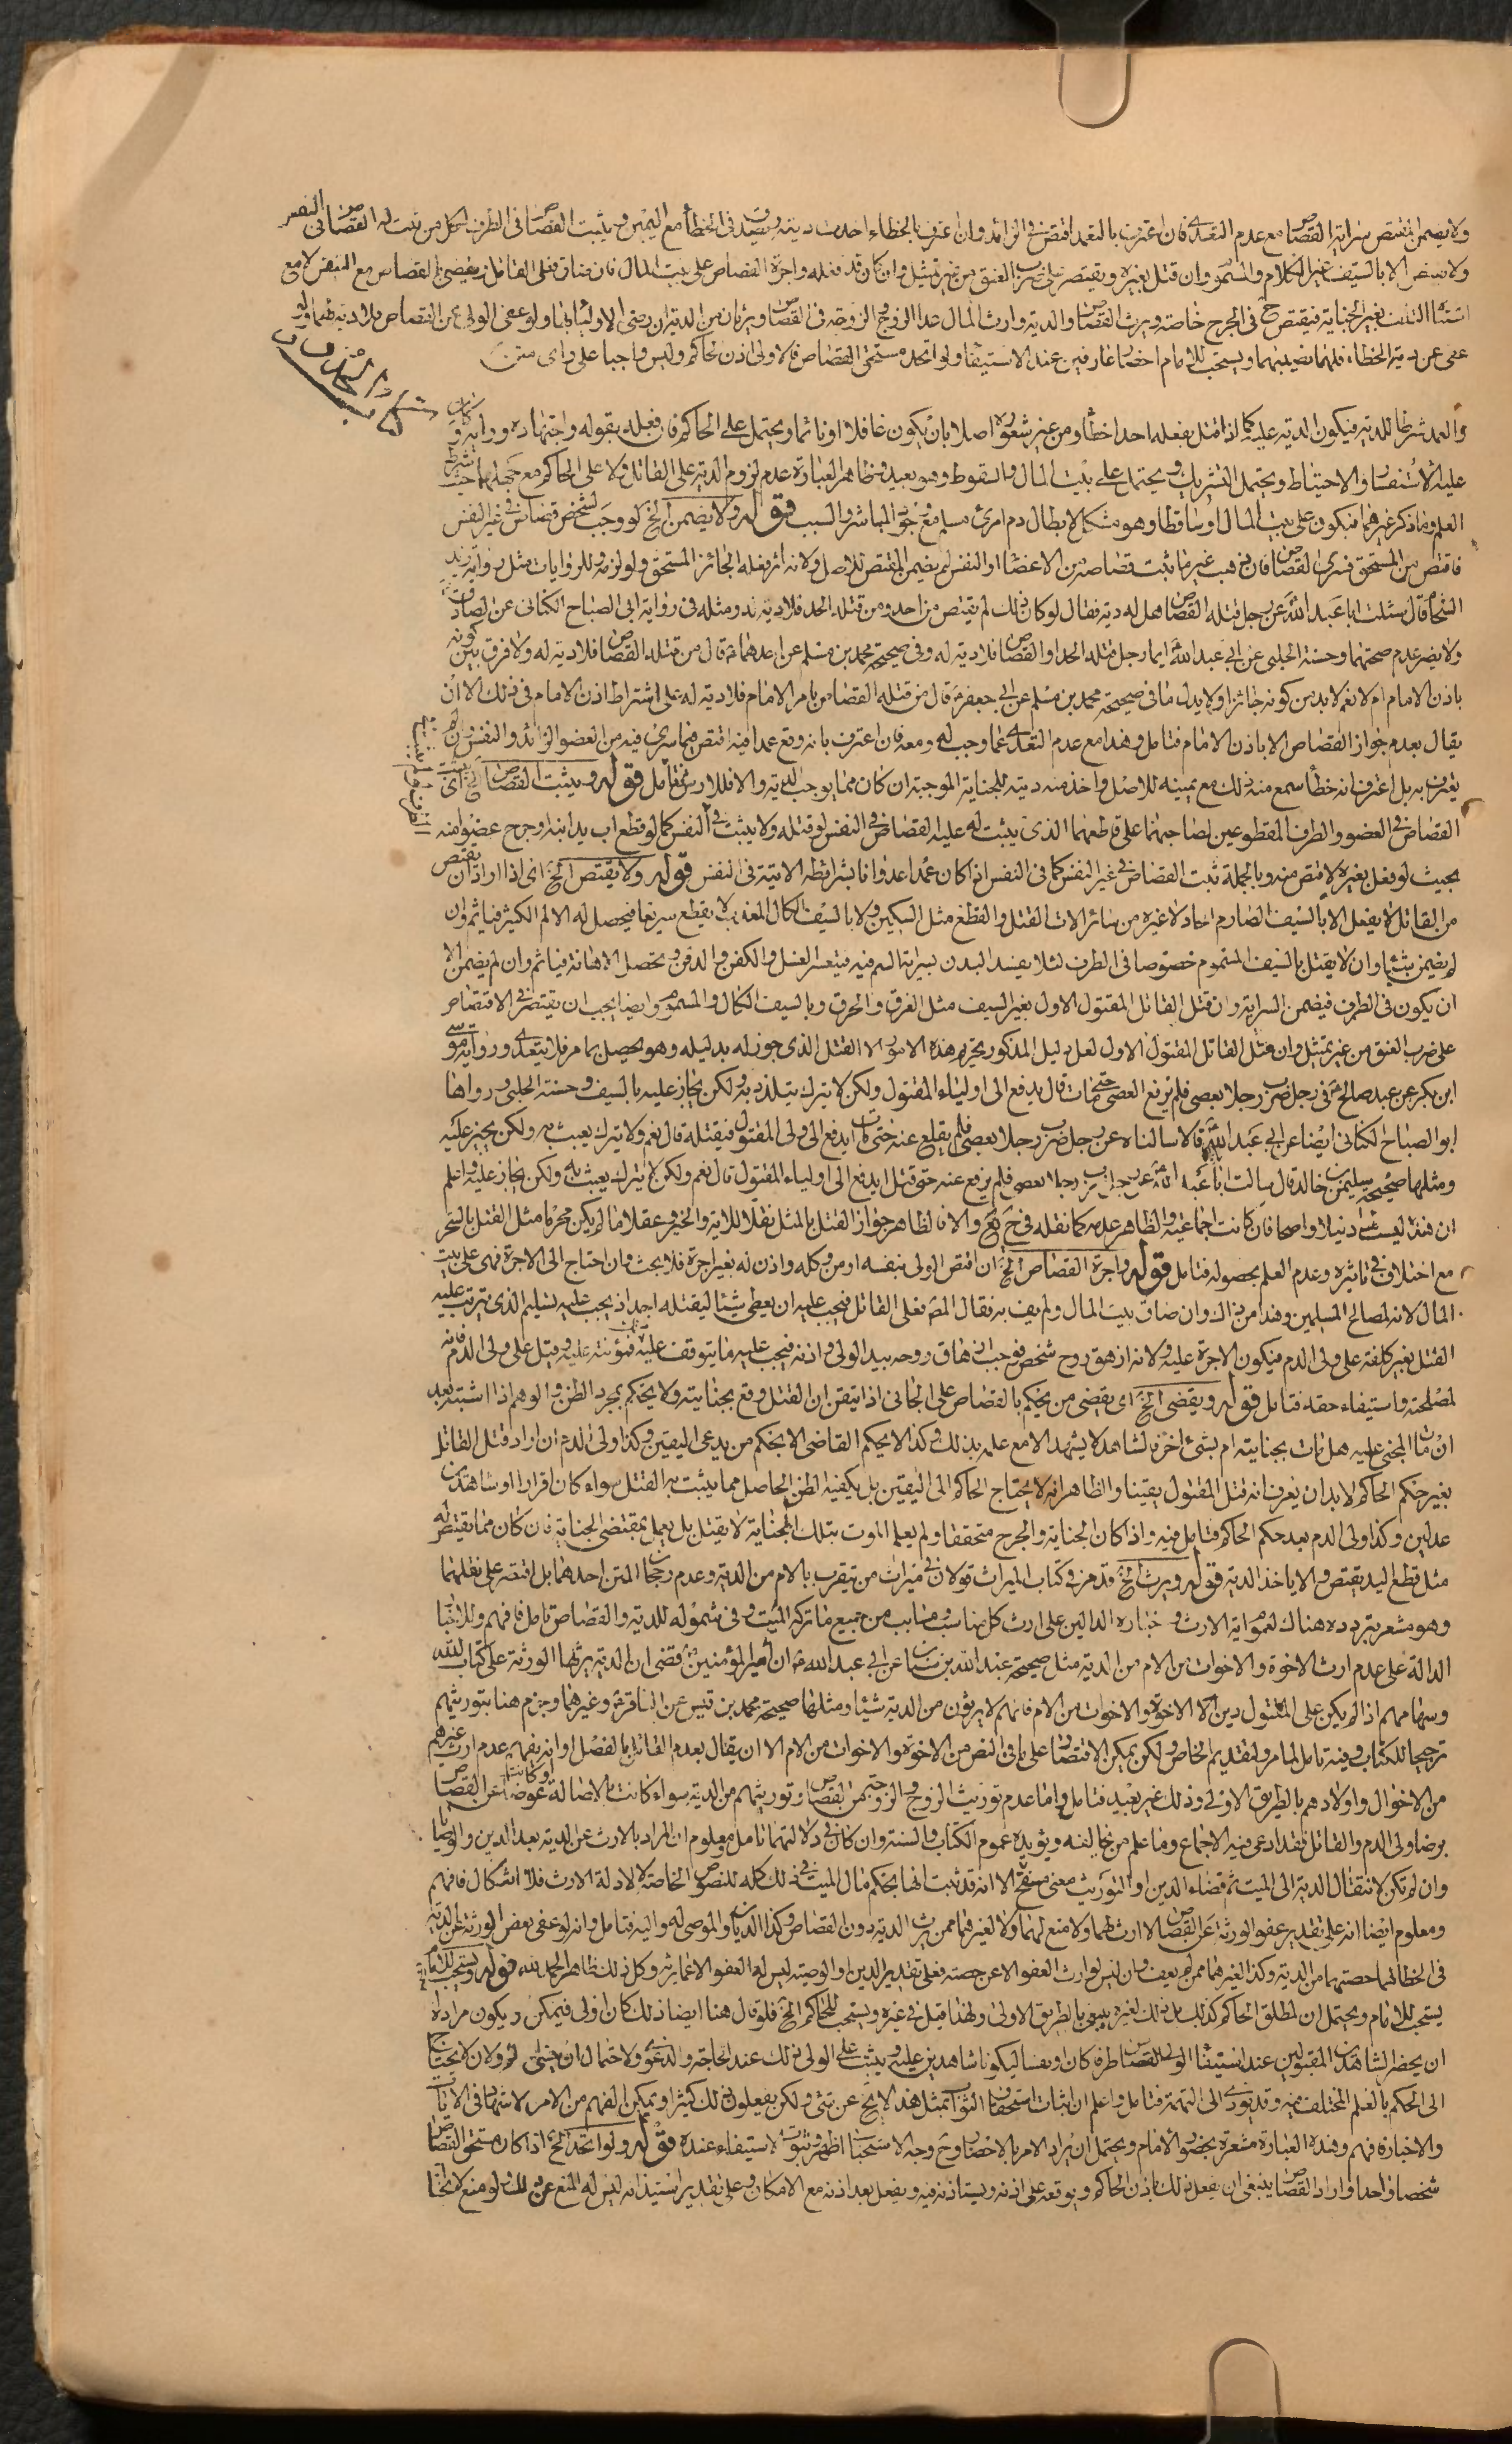 ولا يضمن المقتص سراية القصاص مع عدم التعدى فان اعترف بالتعمد اقتص فى الزائد وان اعترف بالخطاء اخذت ديته ويصدق فى الخطأ مع اليمين ويثبت القصاص فى الطرف لكل من ثبت له القصاص فى النفس
ولا يقتص الا بالسيف غير الكلام والمسموم وان قتل بغيره ويقتصر على ضرب العنق من غير تمثيل وان كان قد فعله واجرة القصاص على بيت المال فان ضاق فعلى القاتل ويقضى بالقصاص مع التيقن لا مع
اشتباه التلف بغير الجناية فيقتص ح فى الجرح خاصة ويرث القصاص والدية وارث المال عدا الزوج والزوجة فى القصاص ويرثان من الدية ان رضى الاولياء بها ولو عفى الولى عن القصاص فلا دية لهما ولو
عفى عن دية الخطاء فلهما نصيبهما ويستحب للامام احضار عارفين عند الاستيفاء ولو اتحد مستحق القصاص فالاولى اذن الحاكم وليس واجبا على راى متن
والعمد شرطا للدية فيكون الدية عليه كما اذا قتل بفعله احدا خطأ ومن غير شعوره اصلا بان يكون غافلا او نائما ويحتمل على الحاكم فان فعله بقوله واجتهاده ورأيه و كان
عليه الاستفسار والاحتياط ويحتمل التشريك ويحتمل على بيت المال والسقوط وهو بعيد فظاهر العبارة عدم لزوم الدية على القاتل ولا على الحاكم مع جهلهما حيث شرط
العلم وما ذكر غيرهما فيكون على بيت المال او ساقطا وهو مشكل لابطال دم امرئ مسلم مع وجود المباشر والسبب قوله ولا يضمن الخ لو وجب لشخص قصاص فى غير النفس
فاقتص من المستحق فسرى القصاص فان ذهب غير ما ثبت قصاصه من الاعضاء او النفس لم يضمن المقتص للاصل ولانه اثر فعله الجائز المستحق ولو لزم وللروايات مثل رواية زيد
الشحام قال سئلت ابا عبد الله عن رجل قتله القصاص هل له دية فقال لو كان ذلك لم يقتص من احد ومن قتله الحد فلا دية له ومثله فى رواية ابى الصباح الكنانى عن الصادق
ولا يضر عدم صحتهما وحسنة الحلبى عن ابى عبد الله ايما رجل قتله الحد او القصاص فلا دية له وفى صحيحة محمد بن مسلم عن احدهما قال من قتله القصاص فلا دية له ولا فرق بين كونه
باذن الامام ام لا نعم لا بد من كونه جائزا ولا يدل ما فى صحيحة محمد بن مسلم عن ابى جعفر قال من قتله القصاص بامر الامام فلا دية له على اشتراط اذن الامام فى ذلك الا ان
يقال بعدم جواز القصاص الا باذن الامام فتامل وهذا مع عدم التعدى عما وجب له ومعه فان اعترف بانه وقع عمدا فيه اقتص فيما سرى فيه من العضو الزائد والنفس وان لم
يعترف به بل اعترف انه خطأ سمع منه ذلك مع يمينه للاصل واخذ منه دية الجناية الموجبة ان كان مما يوجب الدية والا فللارش فتامل قوله ويثبت القصاص الخ اى يثبت
القصاص فى العضو والطرف المقطوعين لصاحبهما على قاطعهما الذى يثبت له عليه القصاص فى النفس لو قتله ولا يثبت فى النفس كما لو قطع اب يد ابنه او جرح عضوا منه
بحيث لو فعل بغيره لاقتص منه وبالجملة ثبت القصاص فى غير النفس كما فى النفس اذا كان عمدا عدوانا بشرائطه الاتية فى النفس قوله ولا يقتص الخ اى اذا اراد ان يقتص
من القاتل لا يفعل الا بالسيف الصارم الحاد لا غيره من سائر الات القتل والقطع مثل السكين ولا بالسيف الكال المعذب لا يقطع سريعا فيحصل له الالم الكثير فياثم وان
لم يضمن شيئا وان لا يقتل بالسيف المسموم خصوصا فى الطرف لئلا يفسد البدن بسراية السم فيه فيتعسر الغسل والكفن والدفن وتحصل الاهانة فياثم وان لم يضمن الا
ان يكون فى الطرف فيضمن السراية وان قتل القاتل المقتول الاول بغير السيف مثل الغرق والحرق وبالسيف الكال والمسموم وايضا يجب ان يقتصر فى الاقتصاص
على ضرب العنق من غير تمثيل وان مثل القاتل المقتول الاول لعل دليل المذكور تحريم هذه الامور الا القتل الذى جوز له بدليله وهو يحصل بما مر فلا يتعدى ورواية موسى
ابن بكر عن عبد صالح فى رجل ضرب رجلا بعصى فلم يرفع العصى حتى مات قال يدفع الى اولياء المقتول ولكن لا يترك يتلذذ به ولكن يجاز عليه بالسيف وحسنة الحلبى ورواها
ابو الصباح الكنانى ايضا عن ابى عبد الله قالا سالناه عن رجل ضرب رجلا بعصى فلم يقلع عنه حتى مات ايدفع الى ولى المقتول فيقتله قال نعم ولا يترك يعبث به ولكن يجيز عليه
ومثلها صحيحة سليمان بن خالد قال سالت ابا عبد الله عن رجل ضرب رجلا بعصى فلم يرفع عنه حتى قتل ايدفع الى اولياء المقتول قال نعم ولكن لا يترك يعبث به ولكن يجاز عليه واعلم
ان هذه ليست دليلا واضحا فان كانت اجماعية والظاهر عدمه كما نقله فى شرح يع والا فالظاهر جواز القتل بالمثل نقلا للاية والخبر وعقلا ما لم يكن محرما مثل القتل بالسحر
مع اختلاف فى تاثيره وعدم العلم بحصوله فتامل قوله واجرة القصاص الخ ان اقتص الولى بنفسه او من وكله واذن له بغير اجرة فلا بحث وان احتاج الى الاجرة فهى على بيت
المال لانه لمصالح المسلمين وهذا من ذاك وان ضاق بيت المال ولم يف به فقال المص فعلى القاتل فيجب عليه ان يعطى شيئا ليقتله احد اذ يجب عليه تسليم الذى ترتب عليه
القتل بغير كلفة على ولى الدم فيكون الاجرة عليه ولانه ازهق روح شخص فوجب ازهاق روحه بيد الولى واذنه فيجب عليه ما يتوقف عليه فمؤنته عليه وقيل على ولى الدم فانه
لمصلحته واستيفاء حقه فتامل قوله ويقضى الخ اى يقضى من يحكم بالقصاص على الجانى اذا تيقن ان القتل وقع بجنايته ولا يحكم بمجرد الظن والوهم اذا اشتبه بعد
ان مات المجنى عليه هل مات بجنايته ام بشئ اخر فالشاهد لا يشهد الا مع علمه بذلك وكذا لا يحكم القاضى الا بحكم من يدعى اليقين وكذا ولى الدم ان اراد قتل القاتل
بغير حكم الحاكم لا بد ان يعرف انه قتل المقتول يقينا والظاهر انه لا يحتاج الحاكم الى اليقين بل يكفيه الظن الحاصل مما يثبت به القتل سواء كان اقرارا او شاهدين
عدلين وكذا ولى الدم بعد حكم الحاكم فتامل فيه واذا كان الجناية والجرح متحققا ولم يعلم الموت بتلك الجناية لا يقتل بل يعمل بمقتضى الجناية فان كان مما يقتص له
مثل قطع اليد يقتص والا ياخذ الدية قوله ويرث الخ قد مر فى كتاب الميراث قولان فى ميراث من يتقرب بالام من الدية وعدم رجحان المتن احدهما بل اقتصر على نقلهما
وهو مشعر بتردده هناك لعموم اية الارث واخباره الدالين على ارث كل مناسب ومسابب من جميع ما تركه الميت وفى شموله للدية والقصاص تامل فافهم وللاخبار
الدالة على عدم ارث الاخوة والاخوات من الام من الدية مثل صحيحة عبد الله بن سنان عن ابى عبد الله ان امير المؤمنين قضى ان الدية يرثها الورثة على كتاب الله
وسهامهم اذا لم يكن على المقتول دين الا الاخوة والاخوات من الام فانهم لا يرثون من الدية شيئا ومثلها صحيحة محمد بن قيس عن الباقر وغيرهما وجزم هنا بتوريثهم
ترجيحا للكتاب وفيه تامل لما مر ولتقديم الخاص ولكن يمكن الاقتصار على ما فى النص من الاخوة والاخوات من الام الا ان يقال بعدم القائل بالفصل او انه يفهم عدم ارث غيرهم
من الاخوال واولادهم بالطريق الاولى وذلك غير بعيد فتامل واما عدم توريث الزوج والزوجة من القصاص وتوريثهم من الدية سواء كانت بالاصالة او كانت عوضا عن القصاص
برضا ولى الدم والقاتل فقد ادعى فيه الاجماع وما علم من يخالفه ويؤيده عموم الكتاب والسنة وان كان فى دلالتهما تامل ومعلوم ان المراد بالارث عن الدية بعد الدين والوصايا
وان لم تكن لانتقال الدية الى الميت ثم قضاء الدين او التوريث معنى صحيح الا انه قد ثبت انها بحكم مال الميت فى ذلك كله للنصوص الخاصة لا لادلة الارث فلا اشكال فافهم
ومعلوم ايضا انه على تقدير عفو الورثة عن القصاص لا ارث لهما ولا منع لهما ولا لغيرهما ممن يرث الدية دون القصاص وكذا الديان والموصى له واليه فتامل وانه لو عفى بعض الورثة عن الدية
فى الخطا لهما حصتهما من الدية وكذا لغيرهما ممن لم يعف وان ليس لوارث العفو الا عن حصته فعلى تقدير الدين او الوصية ليس له العفو الا عما يرثه وكل ذلك ظاهر الحمد لله قوله ويستحب للامام
يستحب للامام ويحتمل ان لمطلق الحاكم كذلك بل ذلك لغيره بالطريق الاولى ولهذا قيل فى غيره ويستحب للحاكم الخ فلو قال هنا ايضا ذلك كان اولى فيمكن ويكون مراده
ان يحضر الشاهدين المقبولين عند استيفاء الولى القصاص طرفا كان او نفسا ليكونا شاهدين عليه ويثبت على الولى ذلك عند الحاجة والدعوى ولاحتمال ان ينسى لو ولان لا يحتاج
الى الحكم بالعلم المختلف فيه وقد يؤدى الى التهمة فتامل واعلم ان اثبات استحقاق الثواب بمثل هذا لا يخ عن شئ ولكن يفعلون ذلك كثيرا ويمكن الفهم من الامر لا سيما فى الايات
والاخبار فافهم وهذه العبارة مشعرة بحضور الامام ويحتمل ان يراد الامر بالاحضار وح وجه الاستحباب اظهر وثبوت الاستيفاء عنده قوله ولو اتحد الخ اذا كان مستحق القصاص
شخصا واحدا واراد القصاص ينبغى ان يفعل ذلك باذن الحاكم ويوقعه على اذنه ويستاذنه فيه ويفعل بعد اذنه مع الامكان وعلى تقدير استيذانه ليس له المنع عن ذلك لو منع لا يحتاج